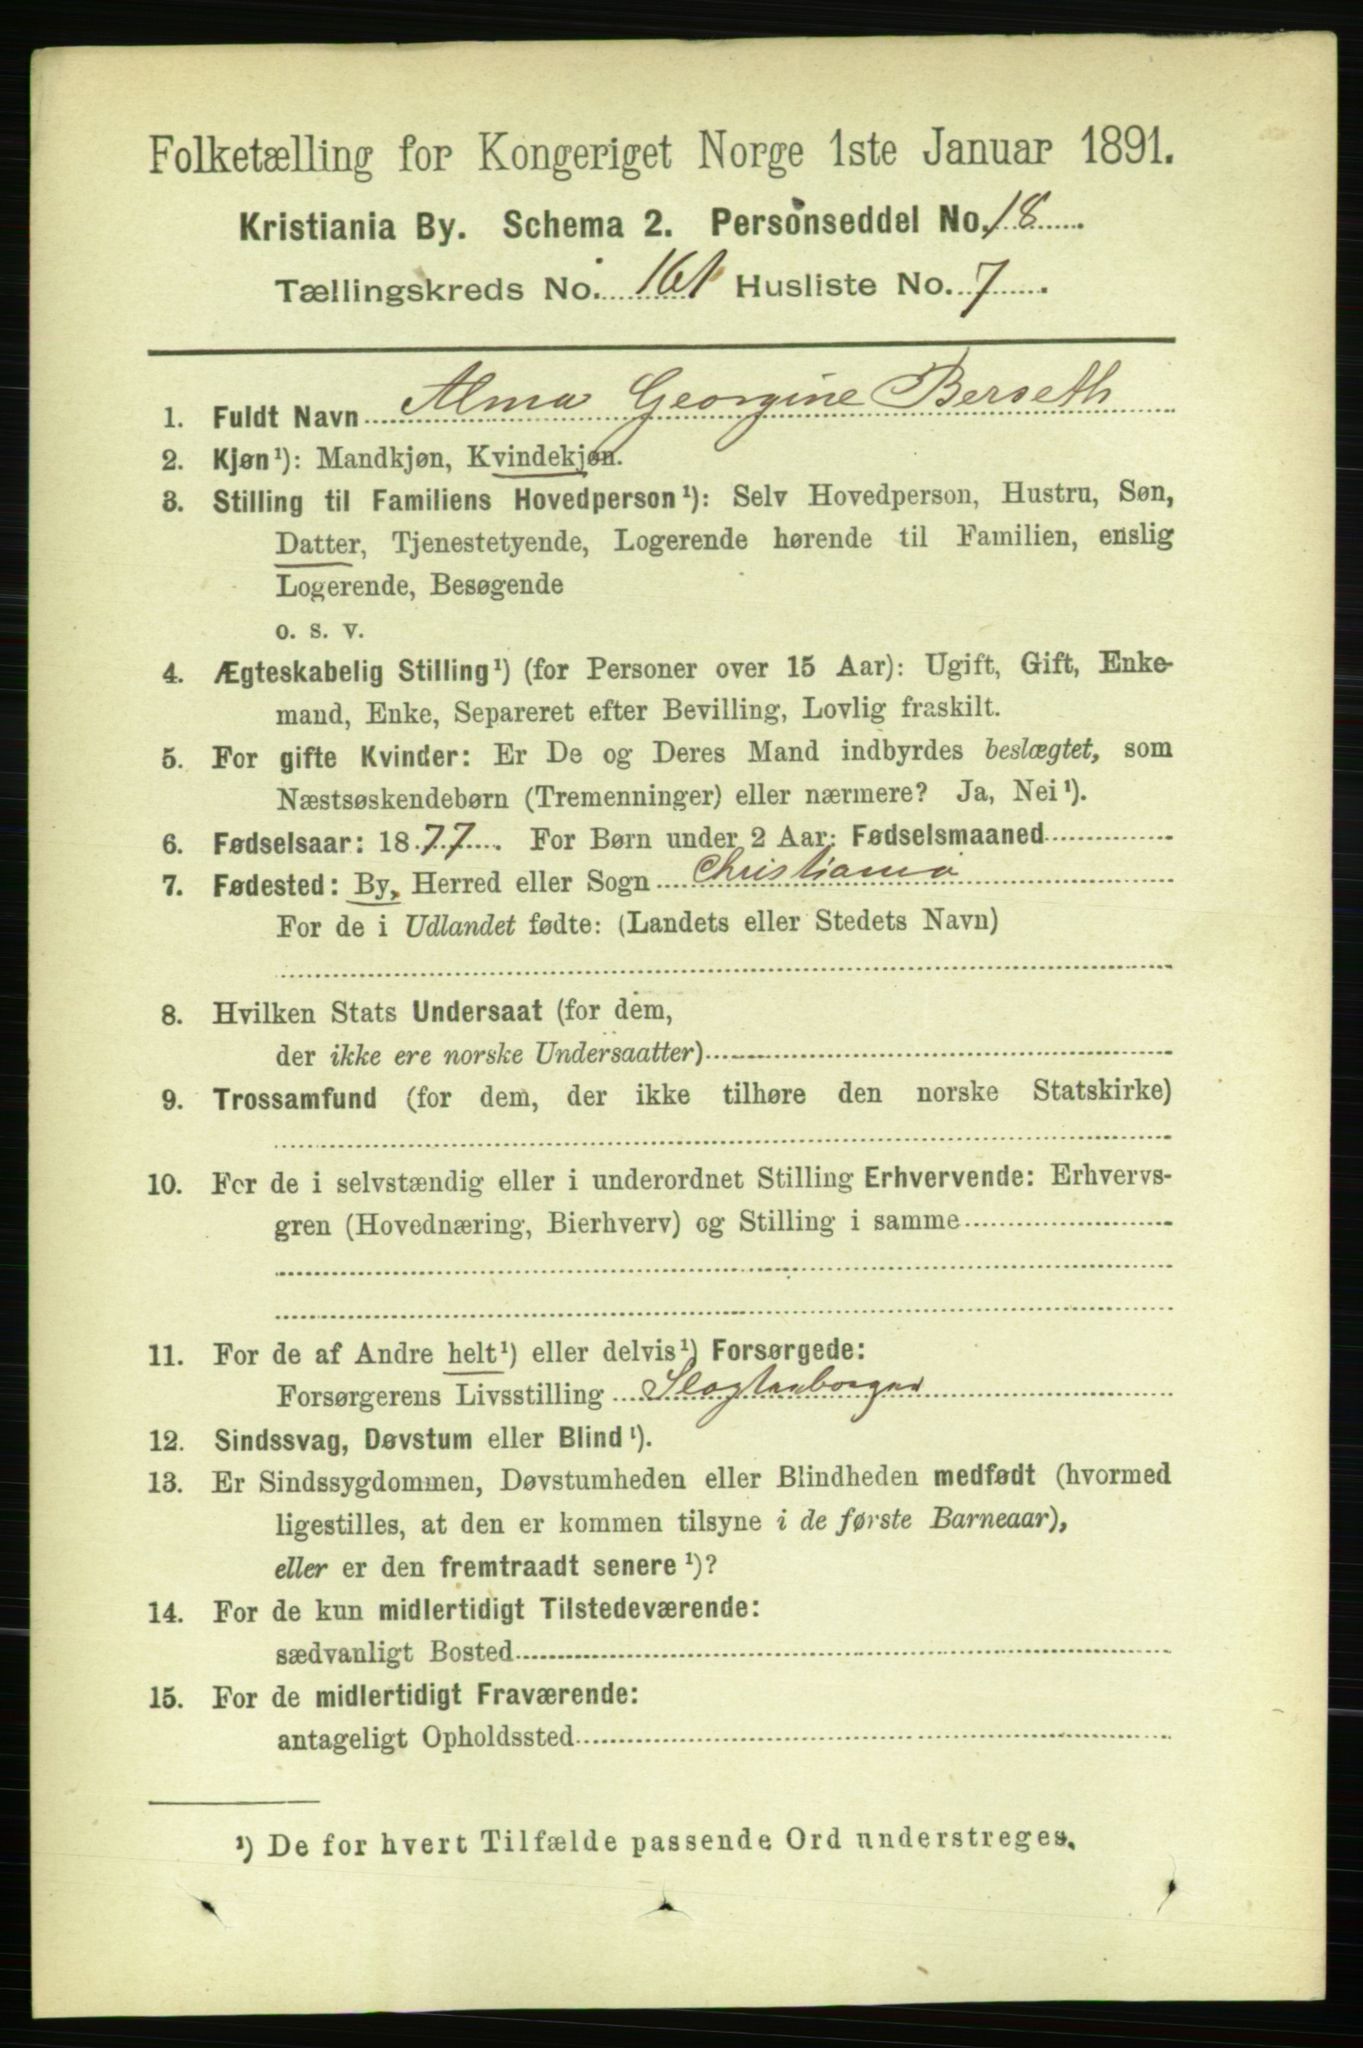 Folketælling for Kongeriget Norge 1ste Januar 1891.
Kristiania By. Schema 2. Personseddel No. 18
Tællingskreds No. 161 Husliste No. 7
1. Fuldt Navn Alma Georgine Berseth
2. Kjøn¹): Mandkjøn, Kvindekjøn.
3. Stilling til Familiens Hovedperson¹): Selv Hovedperson, Hustru, Søn,
Datter, Tjenestetyende, Logerende hørende til Familien, enslig
Logerende, Besøgende
o. s. v.
4. Ægteskabelig Stilling¹) (for Personer over 15 Aar): Ugift, Gift, Enke-
mand, Enke, Separeret efter Bevilling, Lovlig fraskilt.
5. For gifte Kvinder: Er De og Deres Mand indbyrdes beslægtet, som
Næstsøskendebørn (Tremenninger) eller nærmere? Ja, Nei¹).
6. Fødselsaar: 1877. For Børn under 2 Aar: Fødselsmaaned
7. Fødested: By, Herred eller Sogn Christiania
For de i Udlandet fødte: (Landets eller Stedets Navn)
8. Hvilken Stats Undersaat (for dem,
der ikke ere norske Undersaatter)
9. Trossamfund (for dem, der ikke tilhøre den norske Statskirke)
10. For de i selvstændig eller i underordnet Stilling Erhvervende: Erhvervs-
gren (Hovednæring, Bierhverv) og Stilling i samme
11. For de af Andre helt¹) eller delvis¹) Forsørgede:
Forsørgerens Livsstilling Slagterborger
12. Sindssvag, Døvstum eller Blind¹).
13. Er Sindssygdommen, Døvstumheden eller Blindheden medfødt (hvormed
ligestilles, at den er kommen tilsyne i de første Barneaar),
eller er den fremtraadt senere¹)?
14. For de kun midlertidigt Tilstedeværende:
sædvanligt Bosted
15. For de midlertidigt Fraværende:
antageligt Opholdssted
¹) De for hvert Tilfælde passende Ord understreges.